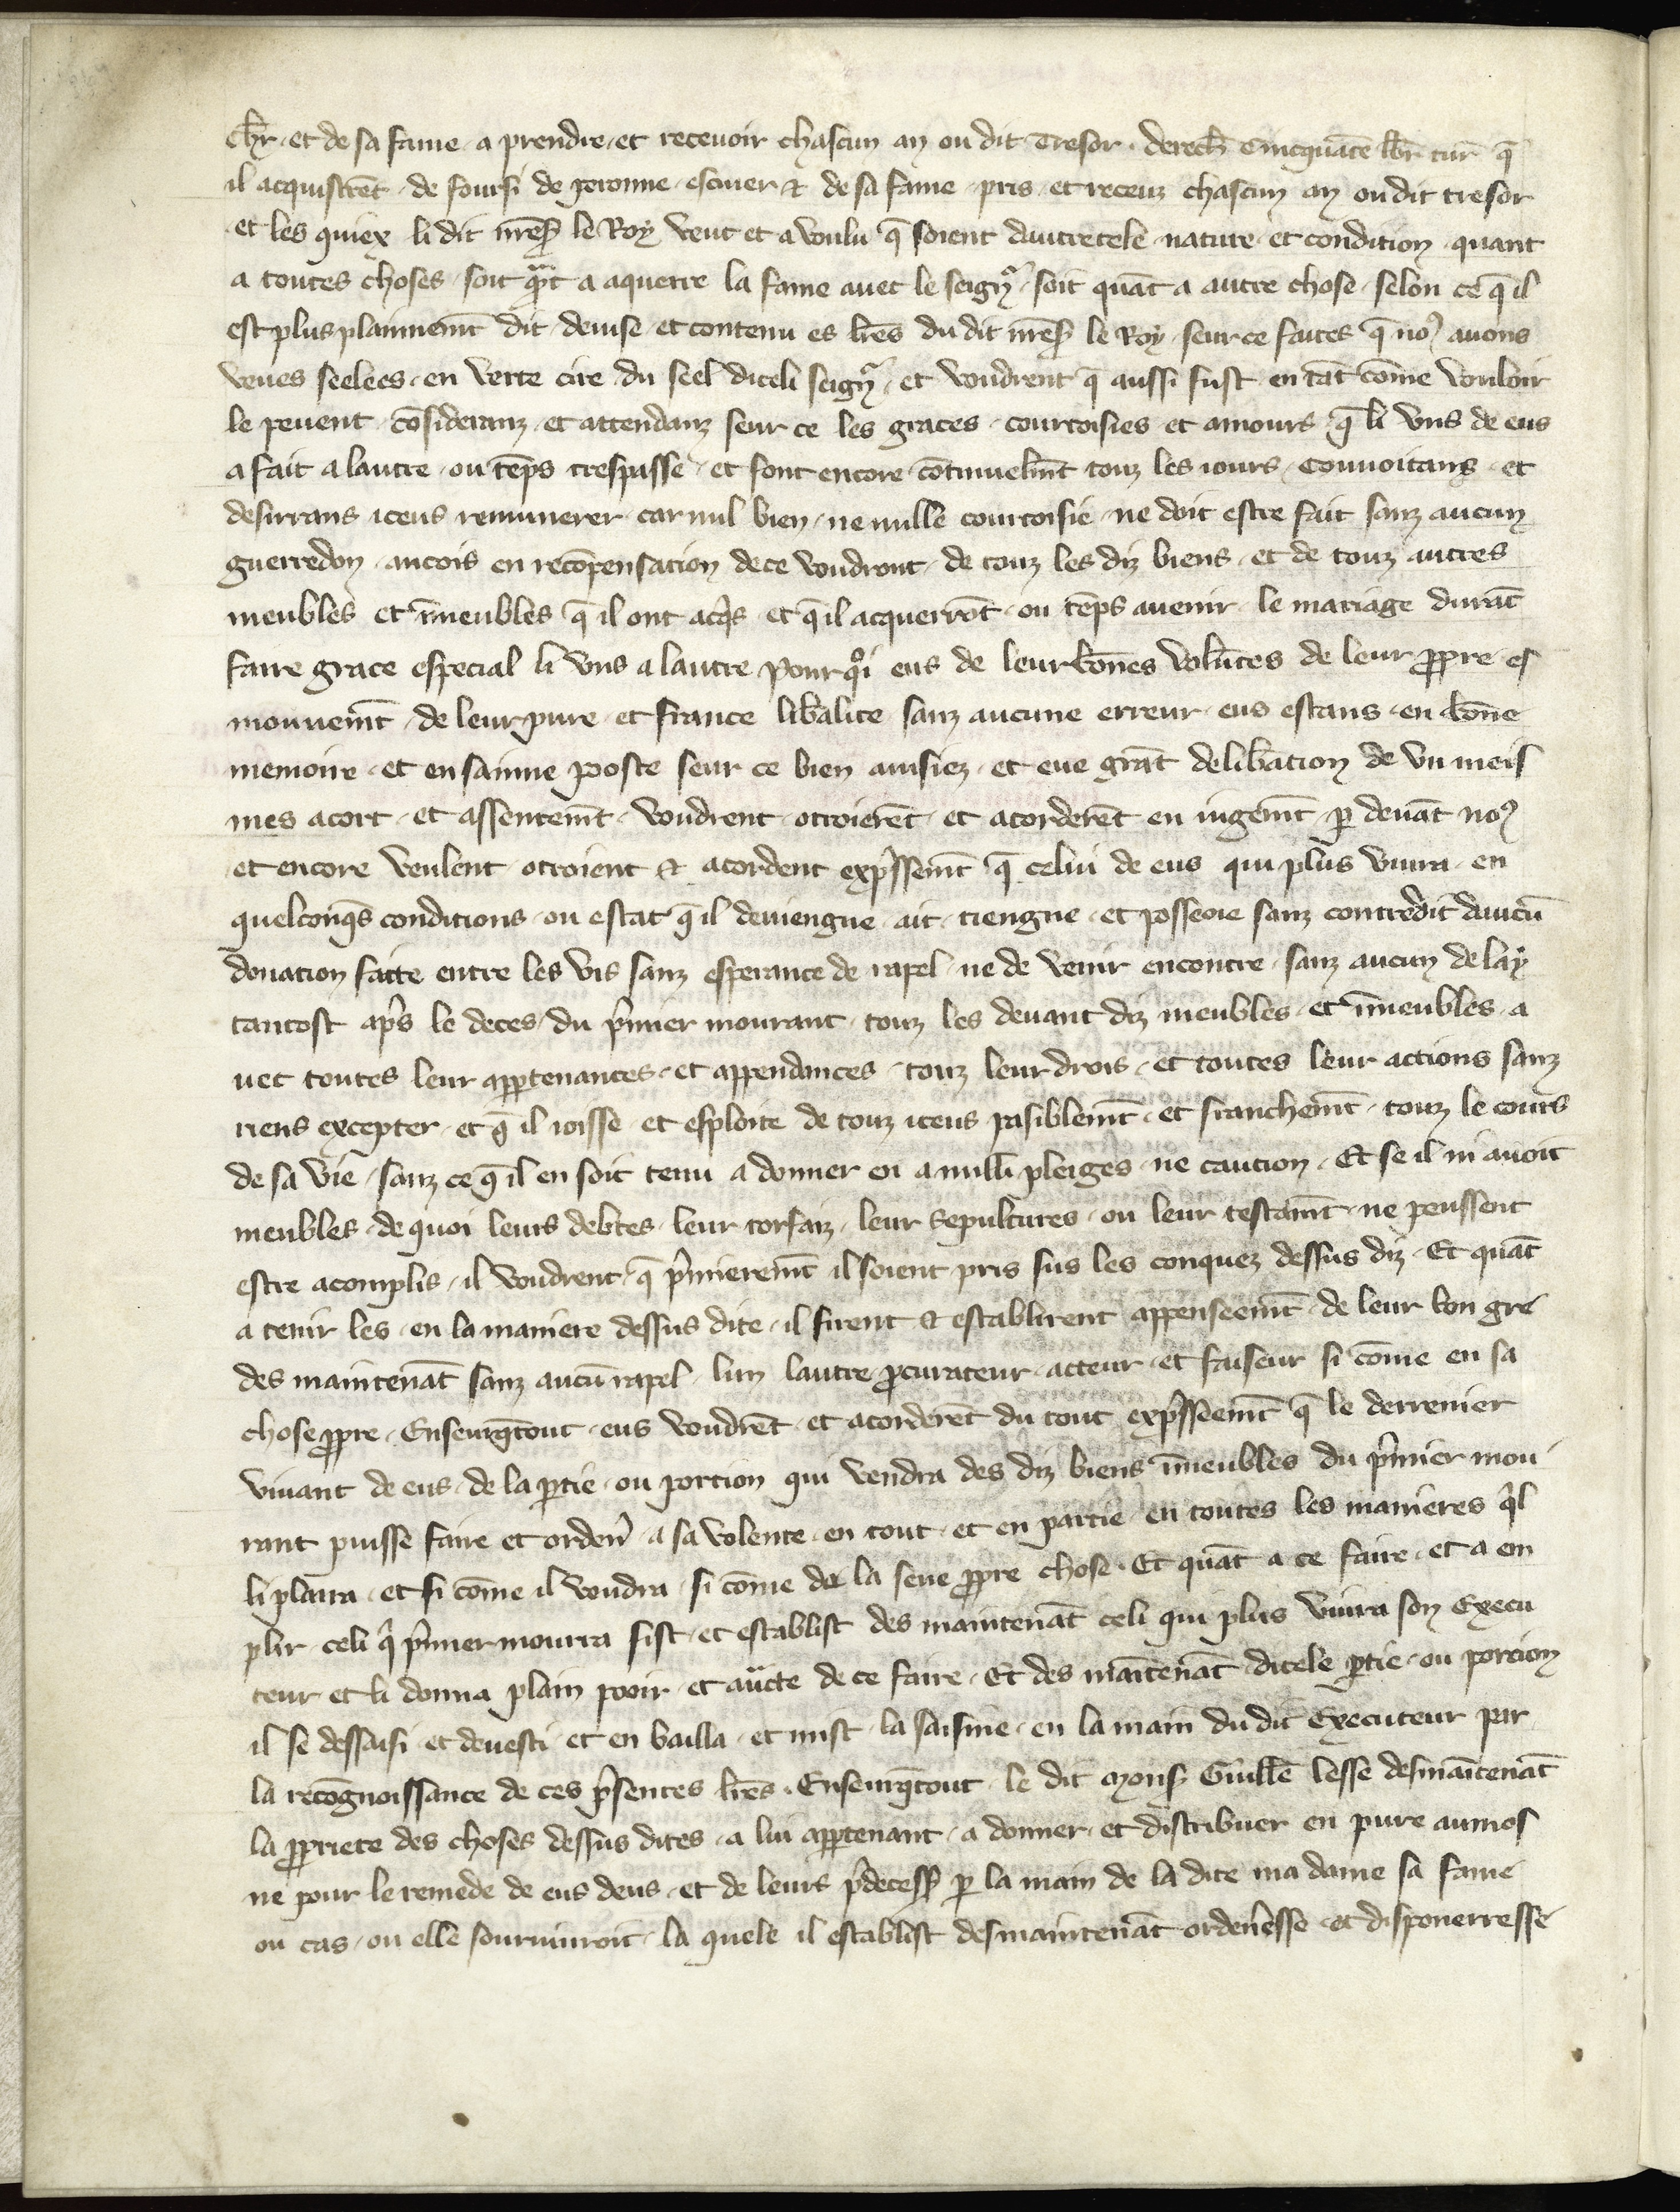 chr̄ · et de sa fame · a prendre · et recevoir chascun an ou dit Tresor · derech̄ Cincquāte lb̄r tur̄ q̄
il acquistrēt · de foursi de peronne · escuier & de sa fame · pris · et receuz chascun an ou dit tresor
et les quiex li dit nr̄e sr̄ le Roy veut et a voulu q̄ soient dautretele nature · et condition · quant
a toutes choses · soit qᵃnt a aquerre la fame avec le seigr̄ · soit quāt a autre chose · selon ce q̄ il
est plus plainnemt̄ dit · devise · et contenu es lr̄es du dit nr̄e sr̄ le Roy · seur ce faites q̄ noꝰ avons
veues seelees · en verte cire · du seel diceli seigr̄ · et voudrent q̄ aussi fust en tāt cōme vouloir
le pevent · cōsideranz · et attendanz seur ce les graces · courtoisies et amours · q̄ li uns de eus
a fait a lautre · ou tēps trespasse · et font encore cōtinuelmt̄ touz les iours · Convoitans · et
desirrans iceus remunerer · car nul bien · ne nulle courtoisie · ne doit estre fait sanz aucun
guerredon · ancois en recōpensacion de ce voudront · de touz les diz biens · et de touz autres
meubles et īmeubles q̄ il ont acq̄s · et q̄ il acquerrōt · ou tēps avenir · le mariage durāt
faire grace especial li uns a lautre Pourqⁱ eus de leur bōnes volūtes de leur ꝓpre es
mouvemt̄ · de leur pure · et france lib̄alite sanz aucune erreur · eus estans · en bōne
memoire · et en sainne poste seur ce bien avisiez · et eue grāt delib̄ation de un meis
mes acort · et assentemt̄ · voudrent · otroierēt · et acorderēt en iugemt̄ · ꝑ devāt noꝰ
et encore veulent · otroient & acordent exp̄ssemt̄ q̄ celui de eus qui plus vivra · en
quelconq̄s conditions · ou estat q̄ il deviengne · ait · tiengne · et possoie sanz contredit daucū
donation faite entre les vis sanz esperance de rapel · ne de venir encontre · sanz aucun delay
tantost ap̄s le deces · du p̄mier mourant · touz les devant diz meubles · et īmeubles · a
vec toutes leur apꝑtenances · et appendances · touz leur drois · et toutes leur actions sanz
riens excepter · et q̄ il ioisse · et esploite de touz iceus pasiblemt̄ · et franchemt̄ · touz le cours
de sa vie · sanz ce q̄ il en soit tenu a donner en a nulli pleiges · ne caution · Et se il ni avoit
meubles · de quoi leurs debtes · leur torfaiz · leur sepultures · ou leur testamt̄ · ne peussent
estre acomplis · il voudrent · q̄ p̄mieremt̄ il soient pris sus les conquez dessus diz · Et quāt
a tenir les · en la maniere dessus dite · il firent & establirent appenseemt̄ · de leur bon gre
des maintenāt sanz aucū rapel lun lautre ꝓcurateur · acteur · et faiseur si cōme en sa
chose ꝓpre · Enseurq̄tout · eus voudrēt · et acorderēt du tout exp̄sseemt̄ q̄ le derrenier
vivant de eus · de la ꝑtie · ou portion qui vendra des diz biens īmeubles du p̄mier mou
rant puisse faire et orden̄ · a sa volente · en tout · et en partie en toutes les manieres qⁱl
li plaira · et si cōme il voudra · si cōme de la seue ꝓpre chose · Et quāt a ce faire · et a em
plir · celi qⁱ p̄mier mourra fist · et establist des maintenāt celi qui plus vivra son Execu
teur et li donna plain pooir · et aucte de ce faire · Et des maītenāt · dicele ꝑtie · ou porcion
il se dessaisi · et devesti · et en bailla · et mist · la saisine · en la main du dit Executeur par
la recōgnoissance de ces p̄sentes lr̄es · Enseurq̄tout · le dit Mons̄ Guill̄e lesse desmaītenāt
la ꝓpriete des choses dessus dites · a lui apꝑtenant · a donner · et distribuer en pure aumos
ne pour le remede de eus deus · et de leurs p̄decess̄ ꝑ la main de la dite ma dame sa fame
ou cas · ou elle sourvivroit · la quele il establist desmaintenāt orden̄esse · et disponerresse